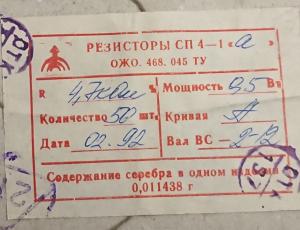 РЕЗИСТОРЫ СП 4–1 «а»
ОЖО. 468. 045 ТУ
R 4,7 кОм Мощность 0,5 Вт
Количество 50 шт. Кривая А
Дата 02.92 Вал ВС – 2-12
Содержание серебра в одном изделии
0,011438 г
ОТК
ОТК